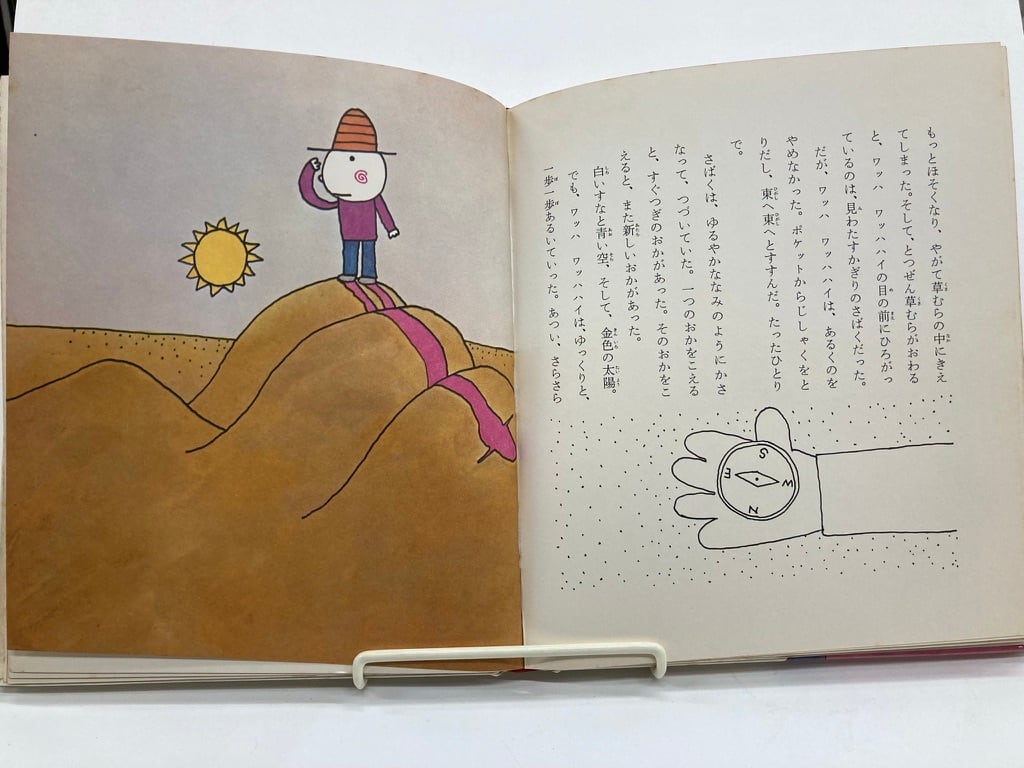 もっとほそくなり、やがて草むらの中にきえ
てしまった。そして、とつぜん草むらがおわる
と、ワッハ　ワッハハイの目の前にひろがっ
ているのは、見わたすかぎりのさばくだった。
だが、ワッハ　ワッハハイは、あるくのを
やめなかった。ポケットからじしゃくをと
りだし、東へ東へとすすんだ。たったひとり
で。
さばくは、ゆるやかななみのようにかさ
なって、つづいていた。一つのおかをこえる
と、すぐつぎのおかがあった。そのおかをこ
えると、また新しいおかがあった。
白いすなと青い空、そして、金色の太陽。
でも、ワッハ　ワッハハイは、ゆっくりと、
一歩一歩あるいていった。あつい、さらさら
S
E
W
N